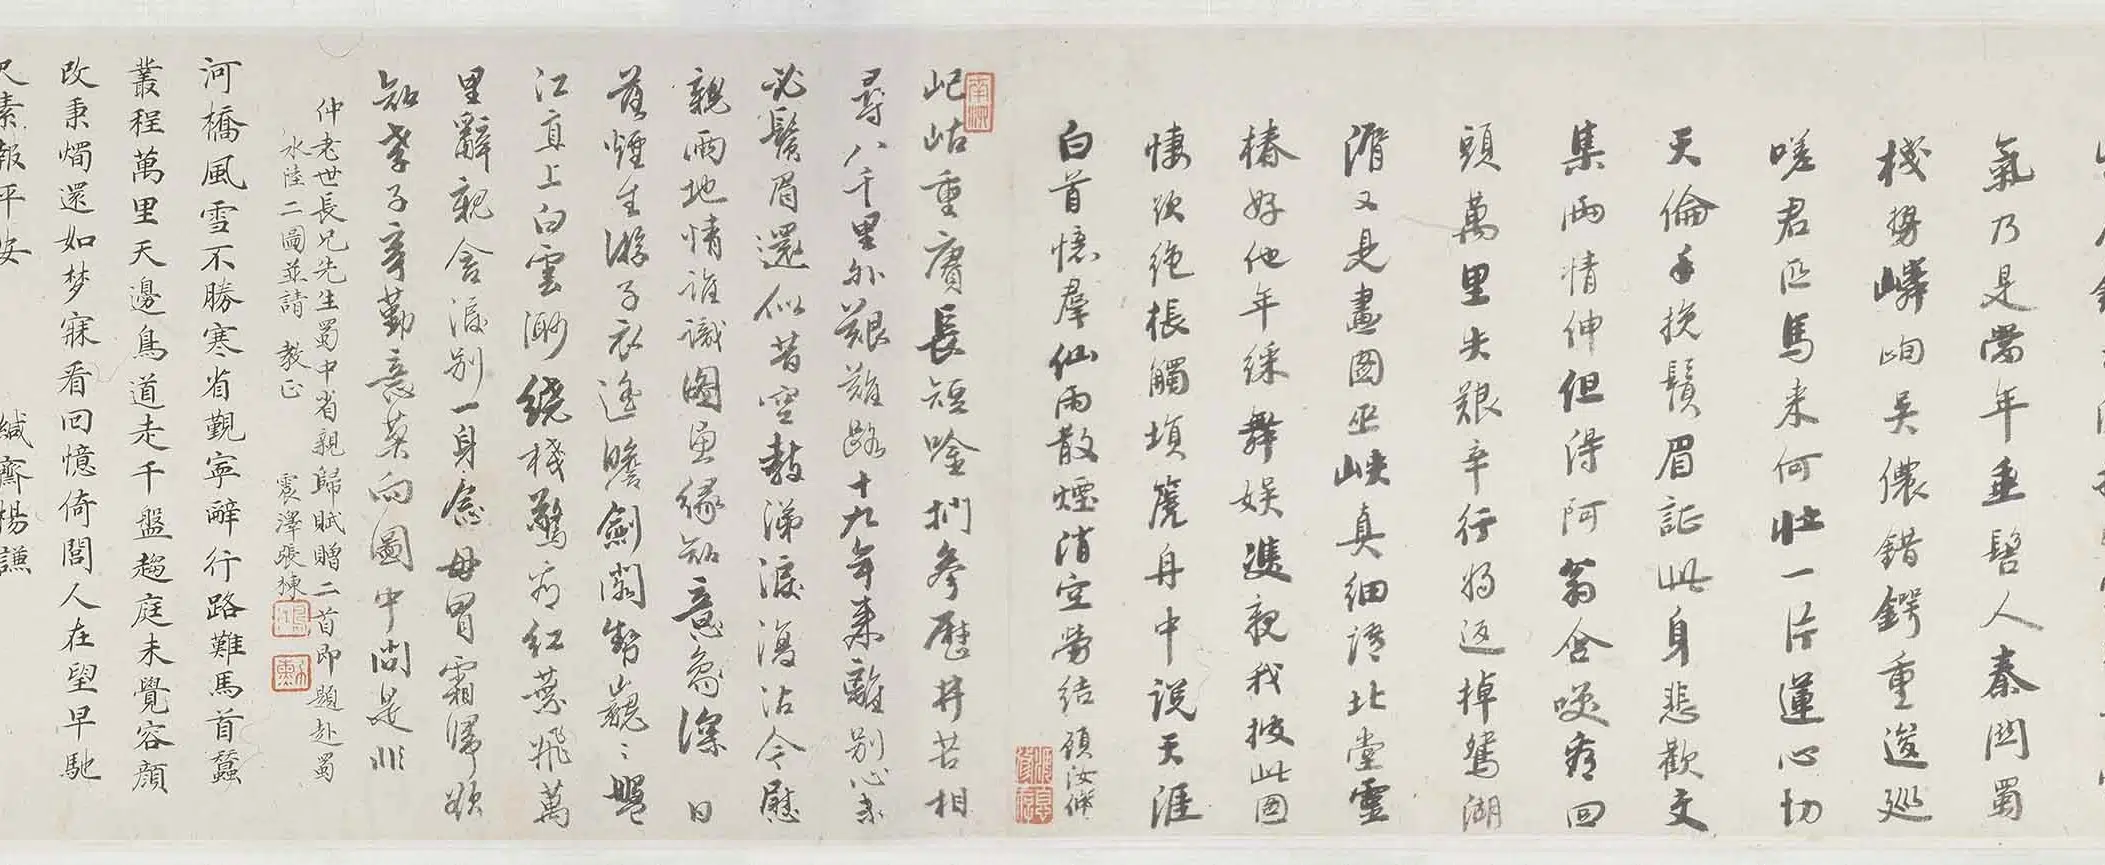 氣乃是當年垂髫人秦關蜀
棧勢嶙峋吳儂錯鍔重逡巡
嗟君匹馬来何壯一片蓮心切
天倫手挽鬚眉証此身悲歡交
集兩情伸但得阿翁含笑看回
頭萬里失艱辛行將返掉鴛湖
滑又是畫圖巫峽真細講北堂靈
椿好他年綵舞娱雙親我披此圖
悽欲絶棖觸塤篪舟中說天涯
白首憶羣仙雨散煙消空勞結 顧汝修
屺岵重賡長短唫捫參歷井苦相
尋八千里外艱難路十九年来離別心未
必鬚眉還似昔空教涕淚復沾今慰
親兩地情誰識圖画緣知意象深 日
落煙生游子衣遙瞻劍閣勢巍〻盤
江直上白雲渺繞棧驚看紅葉飛萬
里辭親舍淚別一身念母冒霜歸須
知孝子辛勤意莫向圖中問是非
仲老世長兄先生蜀中省親歸賦贈二首即題赴蜀
水陸二圖並請 教正 震澤張棟
河橋風雪不勝寒省覲寧辭行路難馬首蠶
叢程萬里天邊鳥道走千盤趨庭未覺容顏
改秉燭還如梦寐看回憶倚閭人在望早馳
尺素報平安 緘齋楊謙